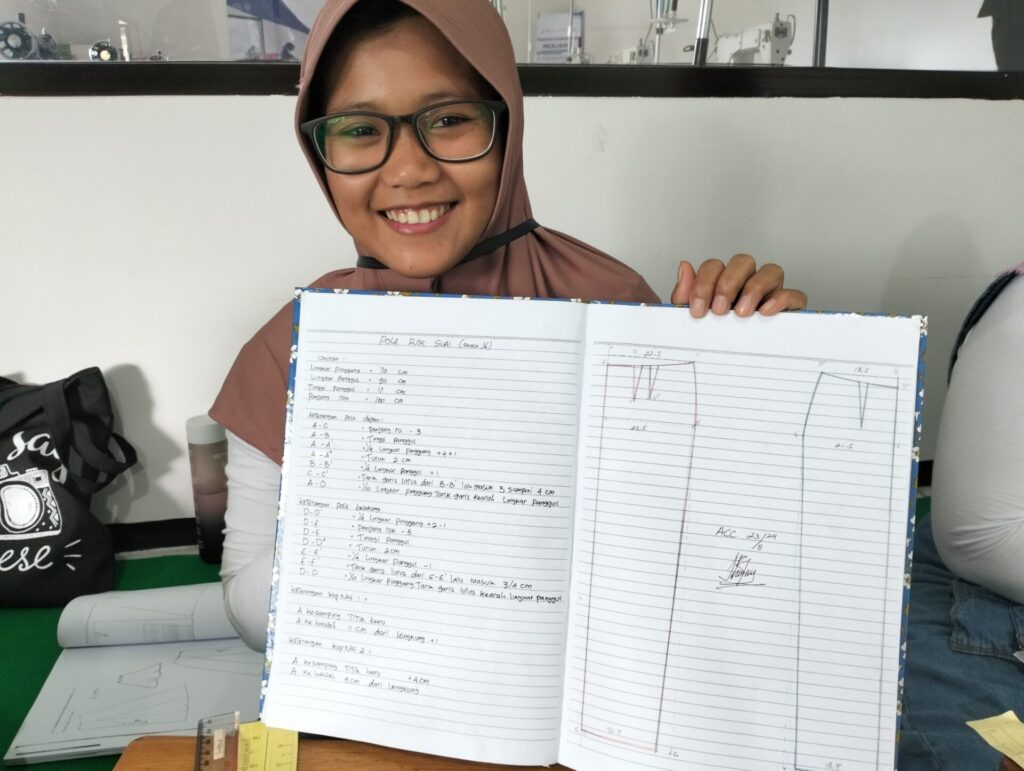 POLA ROK SUAI (skala 1/6)
Ukuran :
Lingkar Pinggang = 70 cm
Lingkar Panggul = 90 cm
Tinggi Panggul = 17 cm
Panjang rok = 100 cm
Keterangan Pola depan :
A - C = panjang ro - 3
A - B = Tinggi panggul
A - A' = 1/4 Lingkar Pinggang +4+1
A - A² = Turun 2 cm
B - B' = 1/4 Lingkar Panggul +1
C - C' = Tarik garis lurus dari B-B' lalu masuk 3 sampai 4 cm
A - O = 1/10 Lingkar pinggang Tarik garis kearah Lingkar Panggul
Keterangan pola belakang
D - D' = 1/4 Lingkar Pinggang +2-1
D - F = panjang rok - 3
D - E = Tinggi Panggul
D - D² = Turun 2cm
E - E' = 1/4 Lingkar Panggul -1
F - F' = Tarik garis lurus dari E-E' lalu masuk 3/4 cm
D - O = 1/10 Lingkar Pinggang Tarik garis lurus kearah Lingkar Panggul
Keterangan kup Nat 1 =
A kesamping Titik baru
A ke bawah 11 cm dari lengkung +1
Keterangan kup Nat 2 :
A kesamping Titik baru +4cm
A ke bawah 9cm dari Lengkung
22.5
23.5
18.5
21.5
ACC 23/24
/8
18.5
ese
MENJAHIT